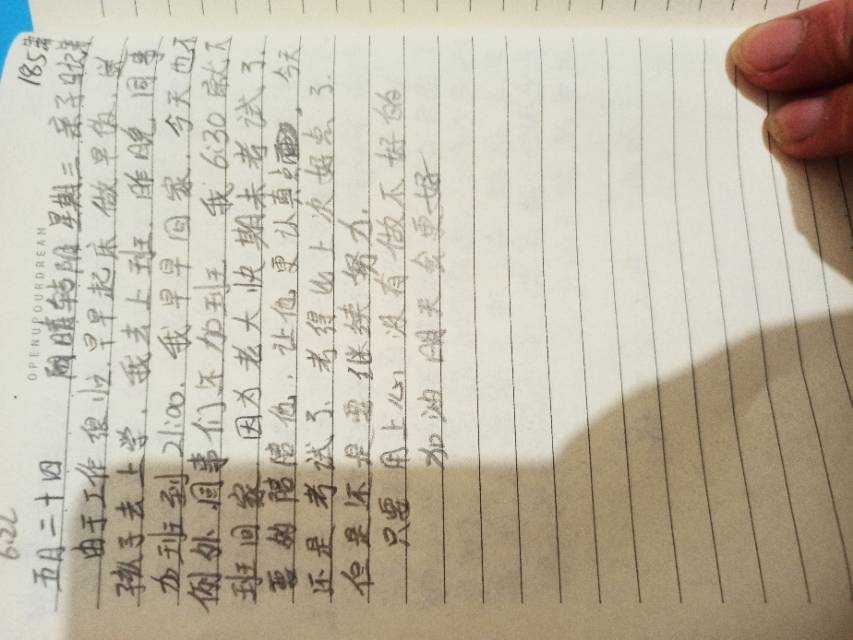 6.22
185
OPENUPOURDREAM
五月二十四 阴晴转阴 星期三 亲子日
由于工作很忙,早早起床做早饭,送
孩子去上学,我去上班,昨晚,同事
加班到21:00,我早早回家,今天也不
例外,同事们还加班,我6:30就下
班回家,因为老大快期末考试了,
要的陪陪他,让他更认真点,今天
还是考试了,考得比上次好点了,
但是还是要继续努力,
只要用上心,没有做不好的
加油 明天会更好